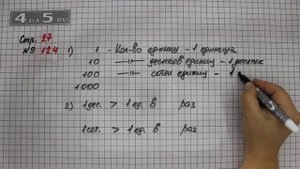 4 да 5 . RU
Стр. 27
№ 124 1) 1 - Кол-во единиц - 1 единица
10 —॥— десятков единиц - 1 десяток
100 —॥— сотен единиц - 1
1000
2) 1 дес. > 1 ед. в раз
1 сот. > 1 ед. в раз